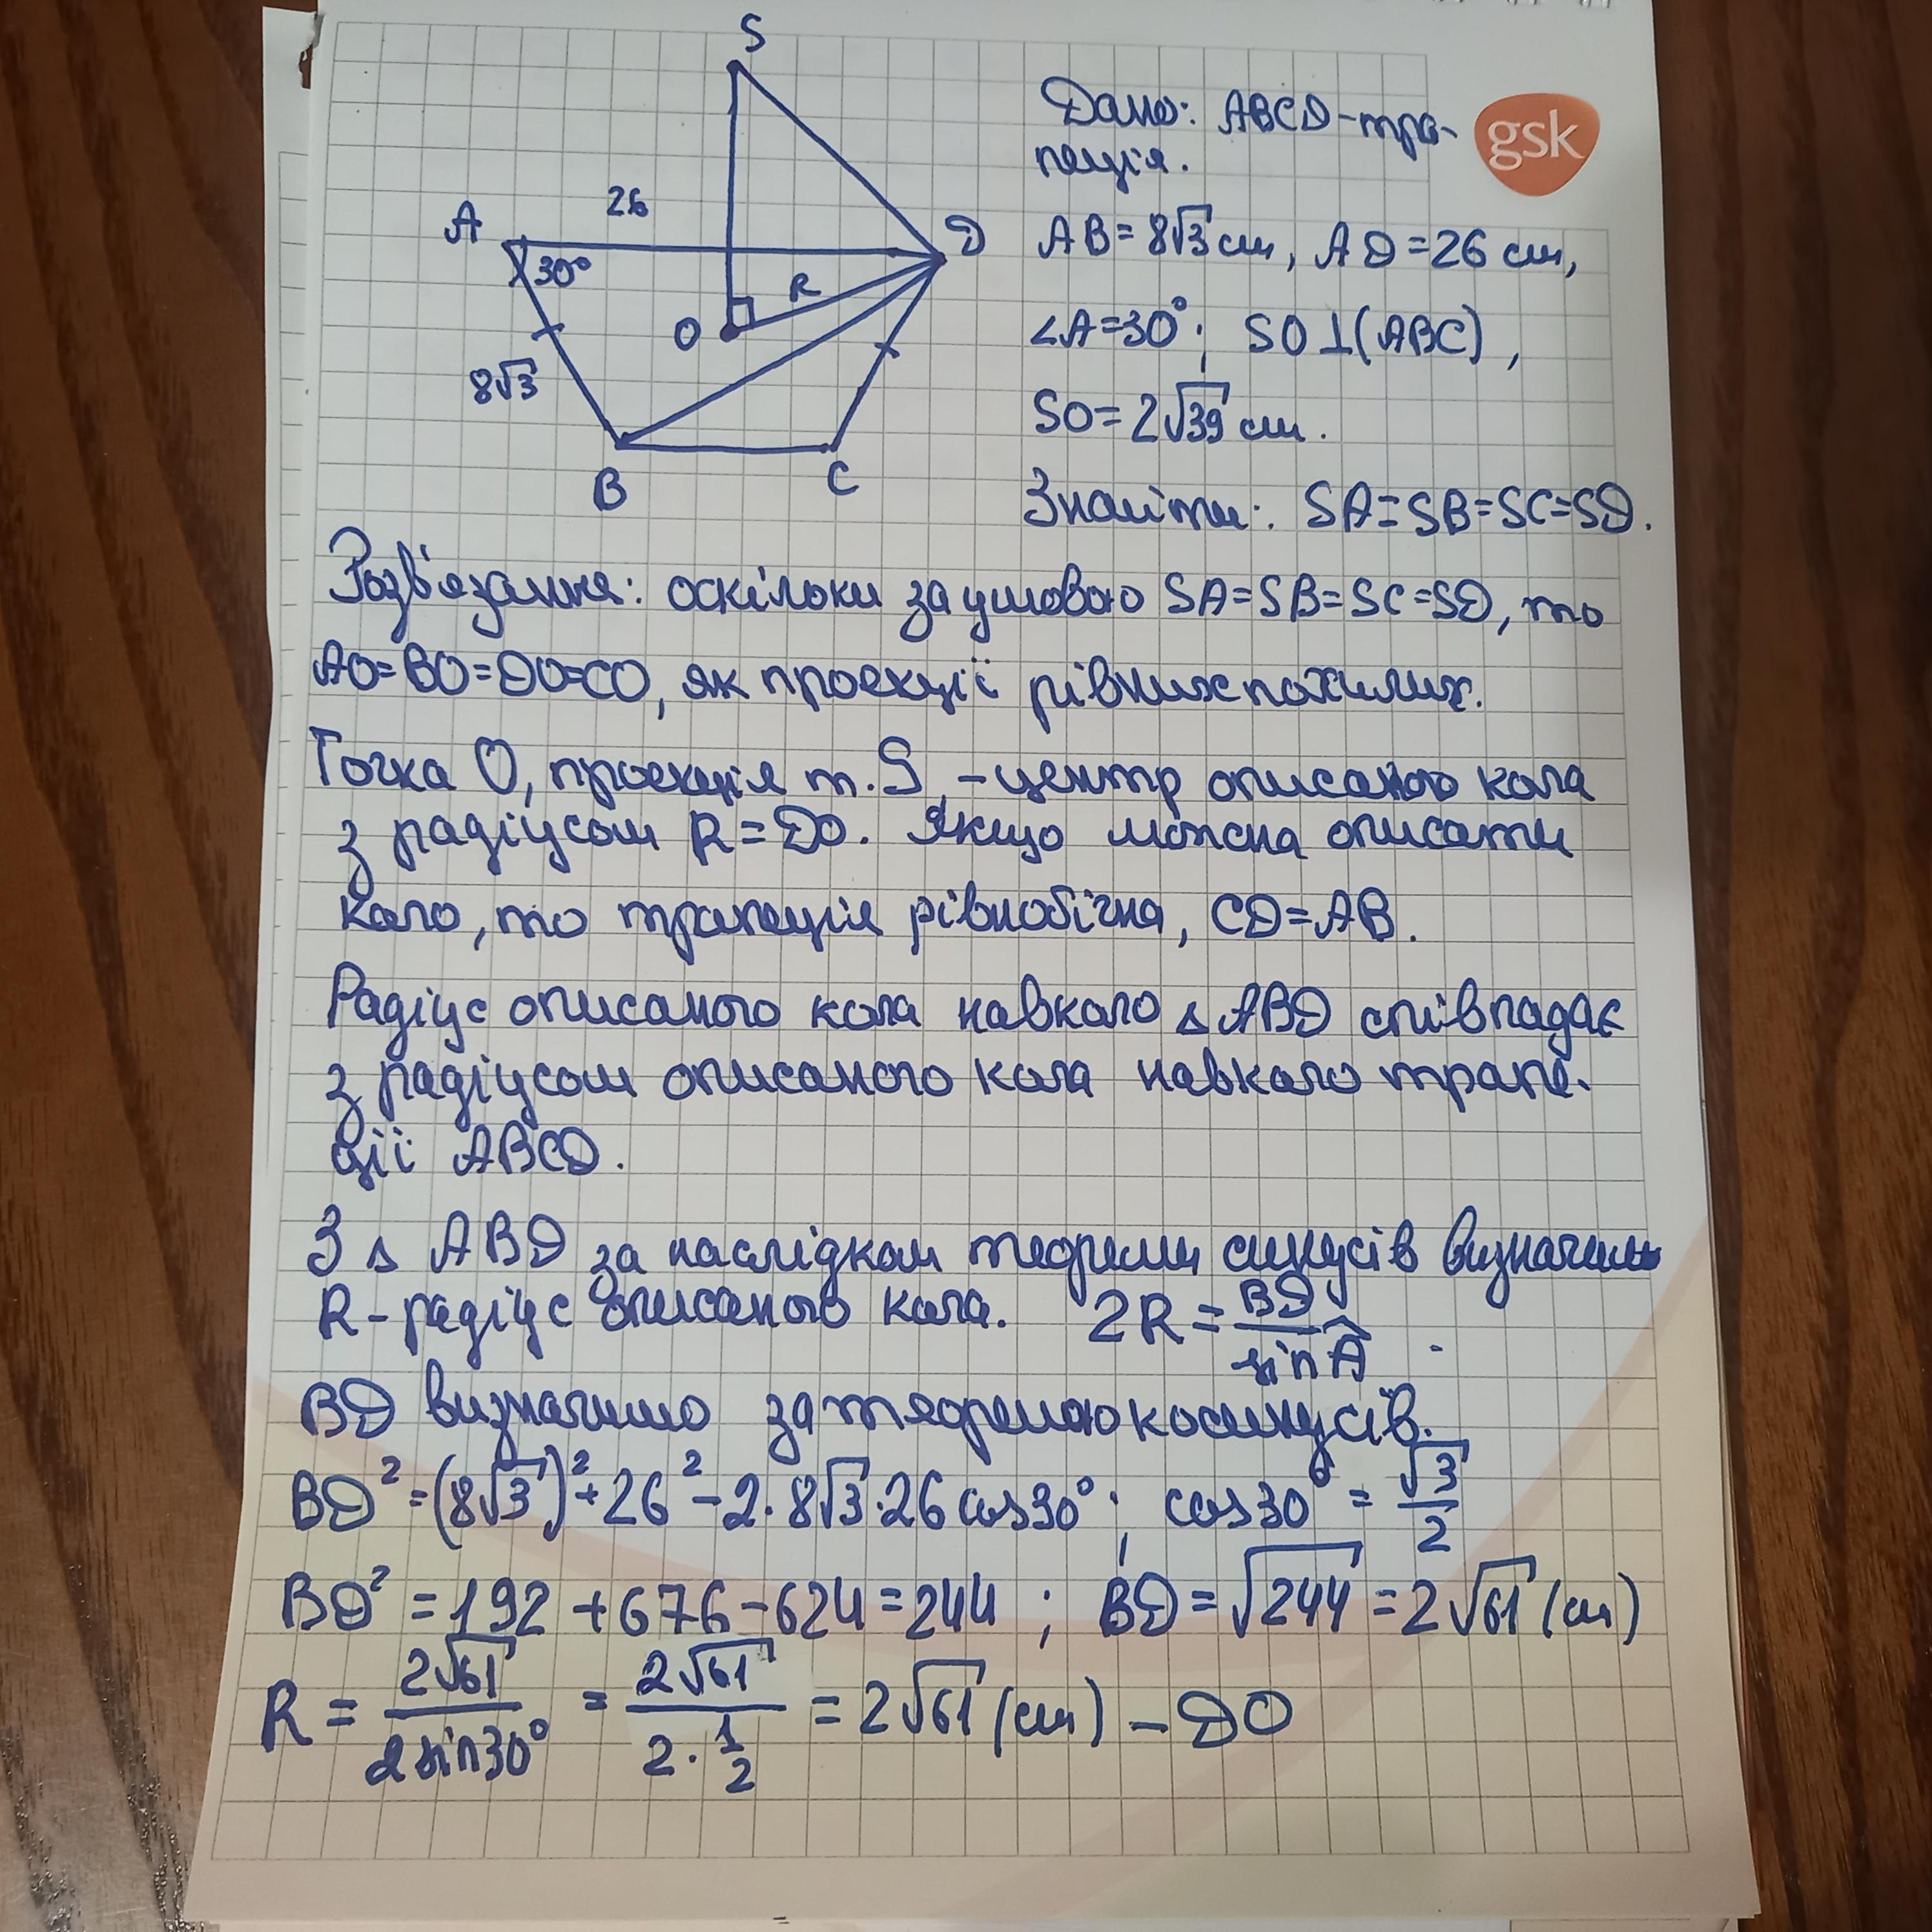 S
A
26
D
30°
R
O
8√3
B
C
gsk
Дано: ABCD-тра-
пеція.
AB=8√3 см, AD=26 см,
∠A=30°; SO⊥(ABC),
SO=2√39 см.
Знайти: SA=SB=SC=SD.
Розв'язання: оскільки за умовою SA=SB=SC=SD, то
AO=BO=DO=CO, як проекції рівних похилих.
Точка O, проекція т. S, - центр описаного кола
з радіусом R=DO. Якщо можна описати
коло, то трапеція рівнобічна, CD=AB.
Радіус описаного кола навколо △ABD співпадає
з радіусом описаного кола навколо трапе-
ції ABCD.
З △ ABD за наслідком теореми синусів визначимо
R-радіус описаного кола. 2R = BD/sin Â.
BD визначимо за теоремою косинусів.
BD² = (8√3)² + 26² - 2·8√3·26 cos30°; cos30° = √3/2
BD² = 192 + 676 - 624 = 244; BD = √244 = 2√61 (см)
R = 2√61/2 sin30° = 2√61/2·1/2 = 2√61 (см) - DO